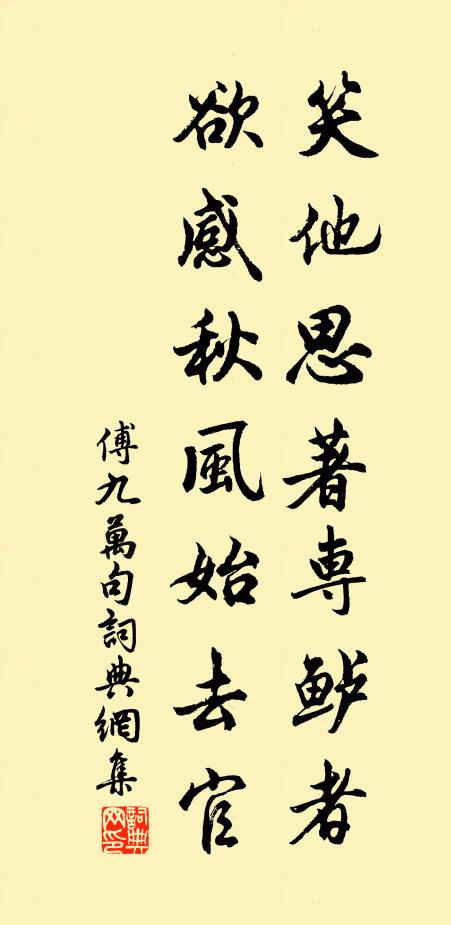 笑他思著専鲈者
欲感秋風始去官
傅九萬句詞典網集
詞典
网印